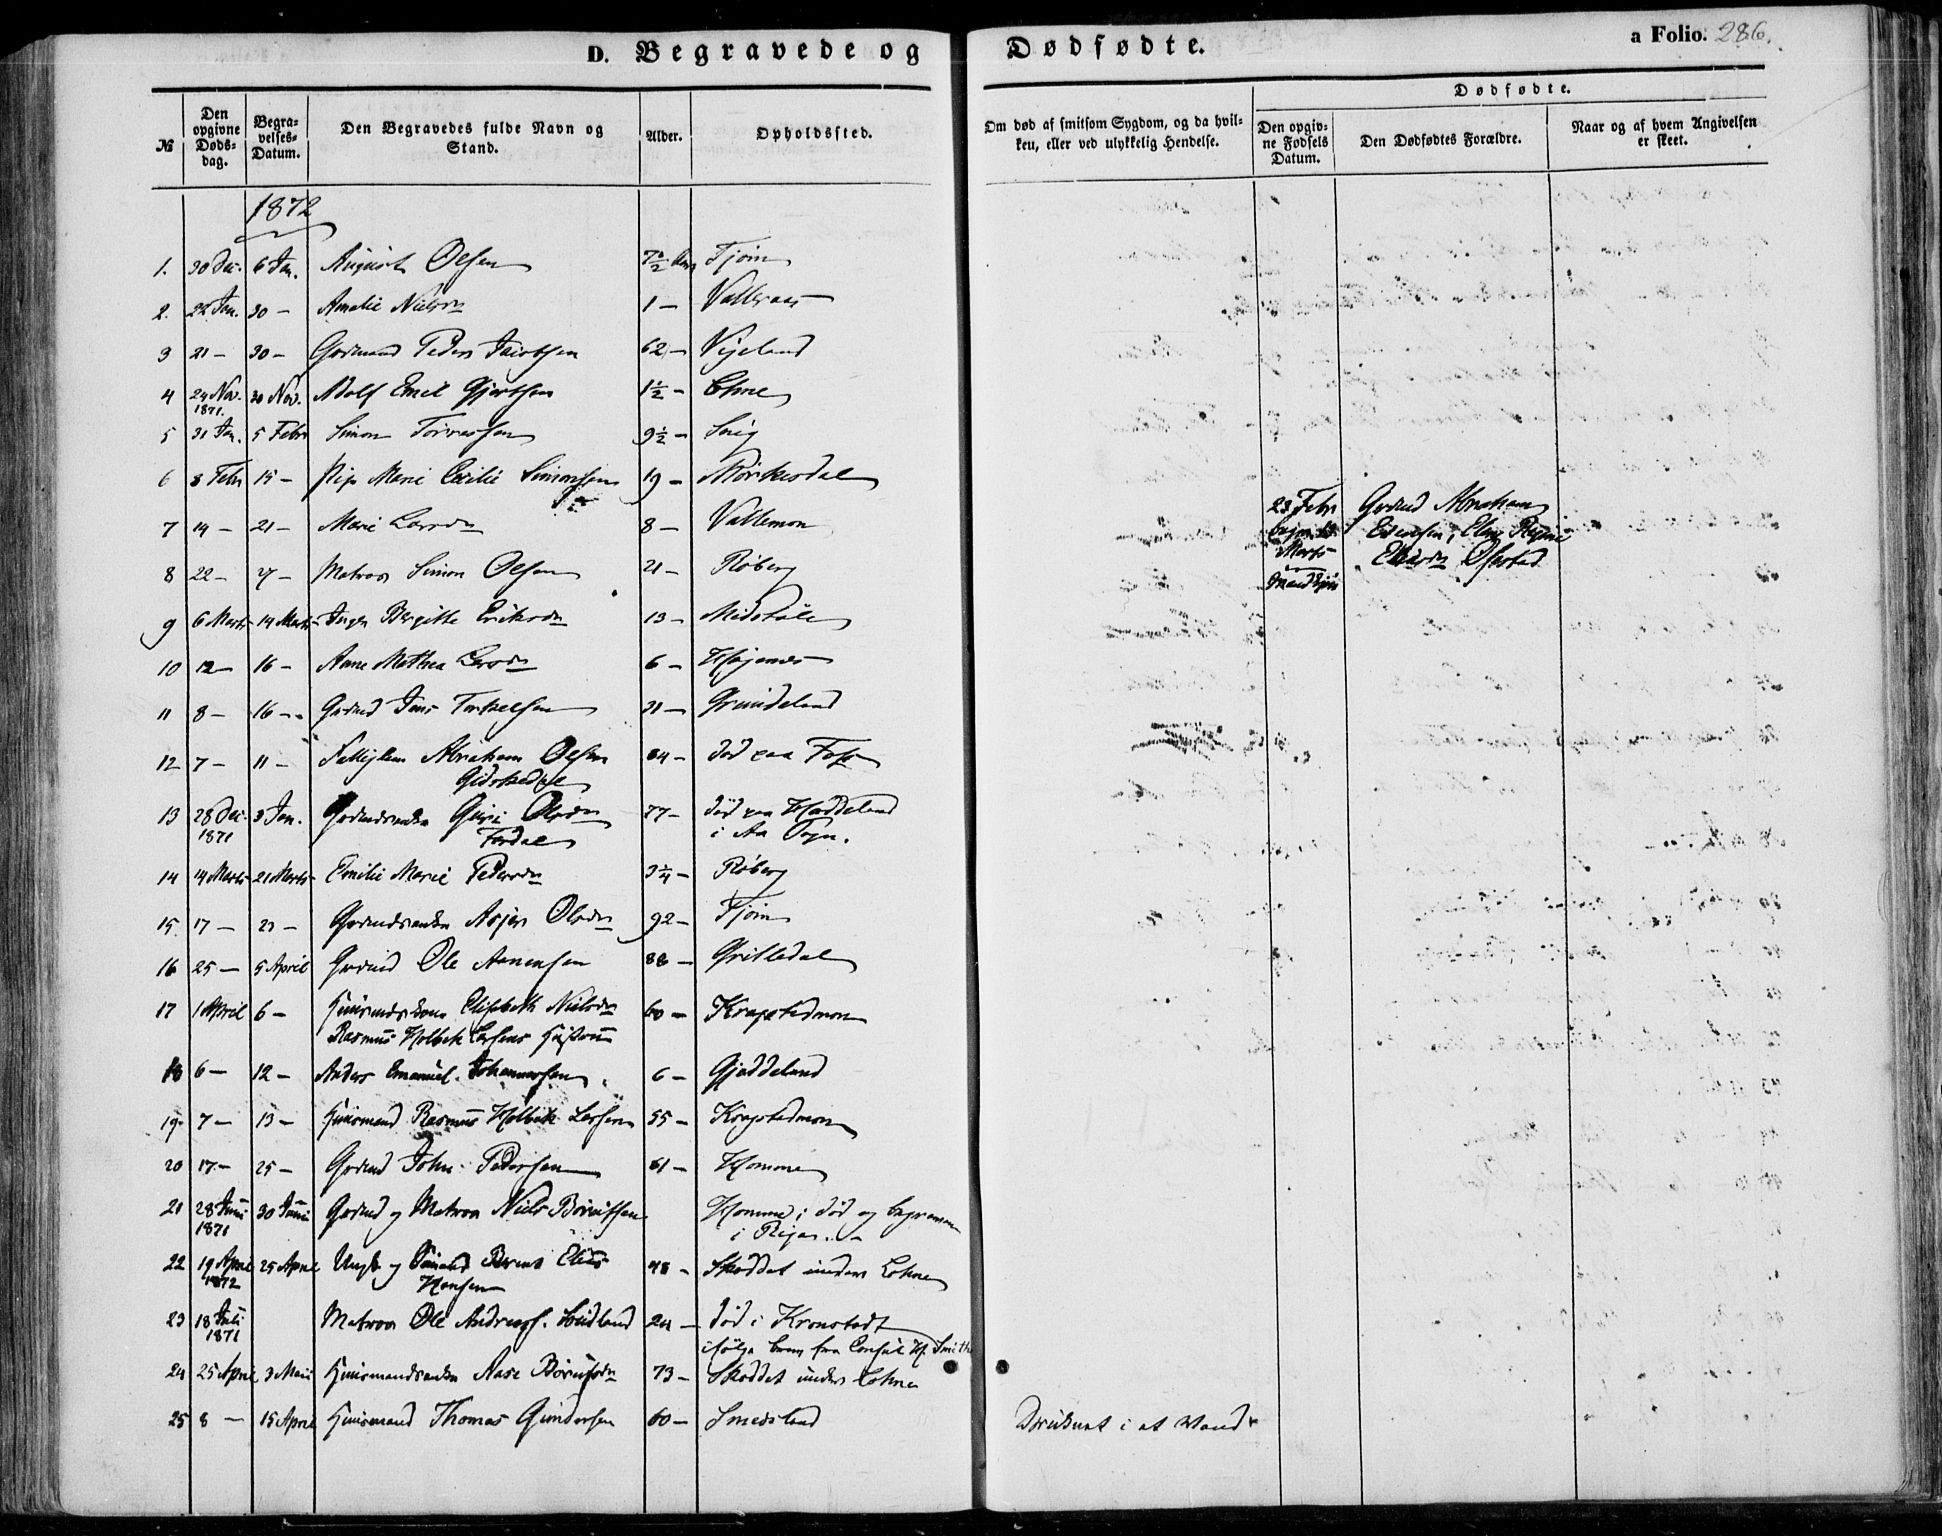 D. Begravede og Dødfødte.
a Folio. 286.
№
Den opgivne Døds-dag.
Begra-velses-Datum.
Den Begravedes fulde Navn og Stand.
Alder.
Opholdssted.
Om død af smitsom Sygdom, og da hvil-ken, eller ved ulykkelig Hendelse.
Dødfødte.
Den opgiv-ne Fødsels Datum.
Den Dødfødtes Forældre.
Naar og af hvem Angivelsen er skeet.
1872
1. 30 Dec. 6 Jan. August Olsen 7½ Tjøm
2. 22 Jan. 30 — Amalie Nielsdn 1 — Valleraas
3 21 — 30 — Gaardmand Peder Jacobsen 62 — Vigeland
4 24 Nov. 1871. 30 Nov. Adolf Emil Gjertsen 1½ — Lohne
5 31 Jan. 5 Febr Simon Torressen 9½ — Snig
6 8 Febr 15 — Pige Marie Cecilie Simonsen 19 — Mørkesdal
7 14 — 21 — Marie Larsdn 8 — Vallemon
23 Febr Gaardmd Abraham
8 22 — 27 — Matros Simon Olsen 21 — Røberg
Marts
9 6 Marts 14 Marts Inger Bergitte Eriksdn 13 — Midbøle
10 12 — 16 — Anne Mathea Larsdn 6 — Høgenes
11 8 — 16 — Gaardmd Jens Torkelsen 31 — Grundeland
12 7 — 11 — Fattiglem Abraham Olsen 84 — død paa Foss
Gidskedal
13 28 Dec. 1871 3 Jan. Gaardmdsenke Guri Olsdn 77 — død paa Haddeland
Fardal
i Aa Sogn.
14 14 Marts 21 Marts Emilie Marie Pedersdn 3¼ — Røberg
15 17 — 23 — Gaardmdsenke Asjer Olsdn 92 — Tjøm
16 25 — 5 April Gaardmd Ole Aanensen 88 — Gritledal
17 1 April 6 — Huusmdskone Elisabeth Nielsdn 60 — Kragstedmon
Rasmus Holbek Larsens Hustrue
18 6 — 12 — Anders Emanuel Johannessen 6 — Gjaddeland
19 7 — 13 — Huusmand Rasmus Holbek Larsen 55 — Kragstedmon
20 17 — 25 — Gaardmd John Pedersen 61 — Homme
21 28 Juni 1871 30 Juni Gaardmd og Matros Niels Børuitsen Homme; død og begraven
i Riga.
22 19 April 1872 25 April Ungk og Berent Elias 48 — Skoddet under Lohne
Hansen
23 18 Juli 1871 Matros Ole Andreas. 24 — død i Kronstadt
ifølge brev fra Consul H. Smith
24 25 April 3 Mai Huusmandsenke Aase 73 — Skoddet under Lohne
25 8 — 15 April Huusmand Thomas Gundersen 60 — Smedsland
Druknet i et Vand